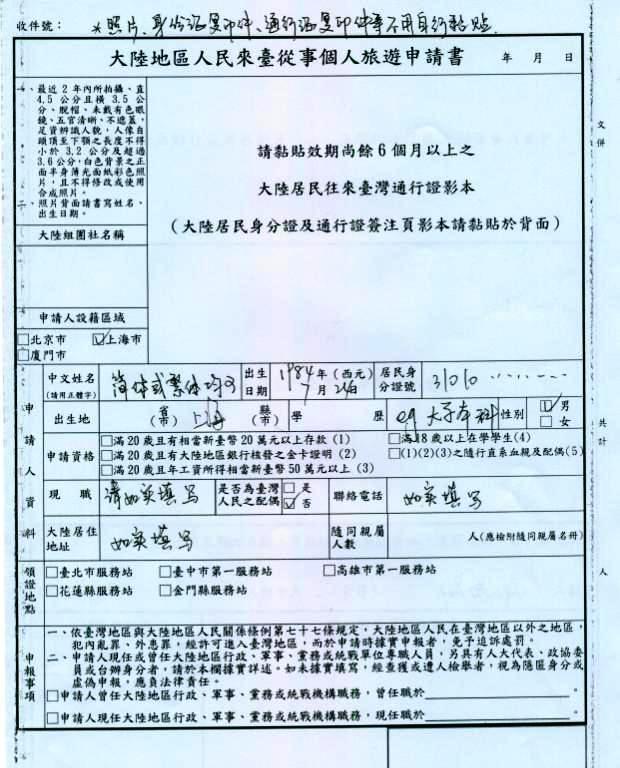 收件號：
*照片、身份证复印件、通行证复印件等不用自行黏贴
大陸地區人民來臺從事個人旅遊申請書 年 月 日
一、最近2年內所拍攝、直
4.5公分且橫3.5公
分、脫帽、未戴有色眼
鏡、五官清晰、不遮蓋，
足資辨識人貌，人像自
頭頂至下顎之長度不得
小於3.2公分及超過
3.6公分，白色背景之正
面半身薄光面紙彩色照
片，且不得修改或使用
合成照片。
二、照片背面請書寫姓名、
出生日期。
請黏貼效期尚餘6個月以上之
大陸居民往來臺灣通行證影本
（大陸居民身分證及通行證簽注頁影本請黏貼於背面）
大陸組團社名稱
申請人設籍區域
□北京市 ☑上海市
□廈門市
申請人資料
中文姓名（請用正體字） 简体或繁体均可 出生日期 1984年（西元）7月24日 居民身分證號 31010
出生地 省（市） 上海 縣（市） 學歷 eg 大学本科 性別 ☑男 □女
申請資格 □滿20歲且有相當新臺幣20萬元以上存款(1) □滿18歲以上在學學生(4)
□滿20歲且有大陸地區銀行核發之金卡證明(2) □(1)(2)(3)之隨行直系血親及配偶(5)
□滿20歲且年工資所得相當新臺幣50萬元以上(3)
現職 请如实填写 是否為臺灣人民之配偶 □是 ☑否 聯絡電話 如实填写
大陸居住地址 如实填写 隨同親屬人數 人(應檢附隨同親屬名冊)
領證地點
□臺北市服務站 □臺中市第一服務站 □高雄市第一服務站
□花蓮縣服務站 □金門縣服務站
申報事項
一、依臺灣地區與大陸地區人民關係條例第七十七條規定，大陸地區人民在臺灣地區以外之地區，
犯內亂罪、外患罪，經許可進入臺灣地區，而於申請時據實申報者，免予追訴處罰。
二、申請人現任或曾任大陸地區行政、軍事、黨務或統戰單位專職人員，另具有人大代表、政協委
員或台辦身分者，請於本欄據實詳述。如未據實填寫，經查獲或遭人檢舉者，視為隱匿身分或
虛偽申報，應負法律責任。
□申請人曾任大陸地區行政、軍事、黨務或統戰機構職務，曾任職於
□申請人現任大陸地區行政、軍事、黨務或統戰機構職務，現任職於
文
併
共
計
人